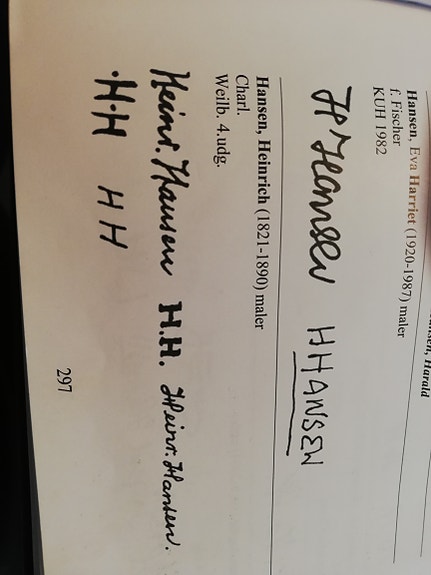 Hansen, Harald
Hansen, Eva Harriet (1920-1987) maler
f. Fischer
KUH 1982
H Hansen HHANSEN
Hansen, Heinrich (1821-1890) maler
Charl.
Weilb. 4.udg.
Heinr. Hansen H.H. Heinr. Hansen.
·H·H H H
297